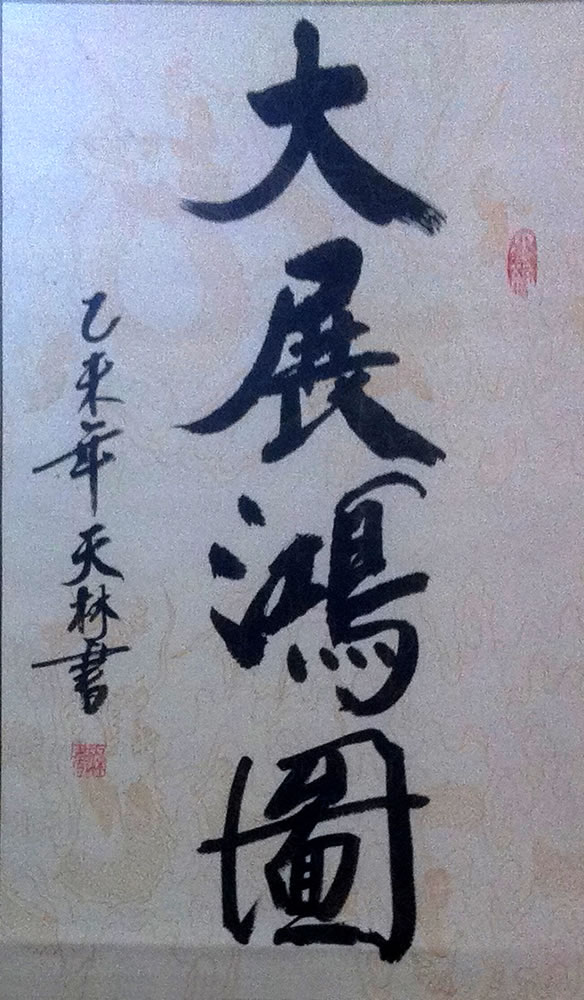 大展鴻圖
乙未年天林書